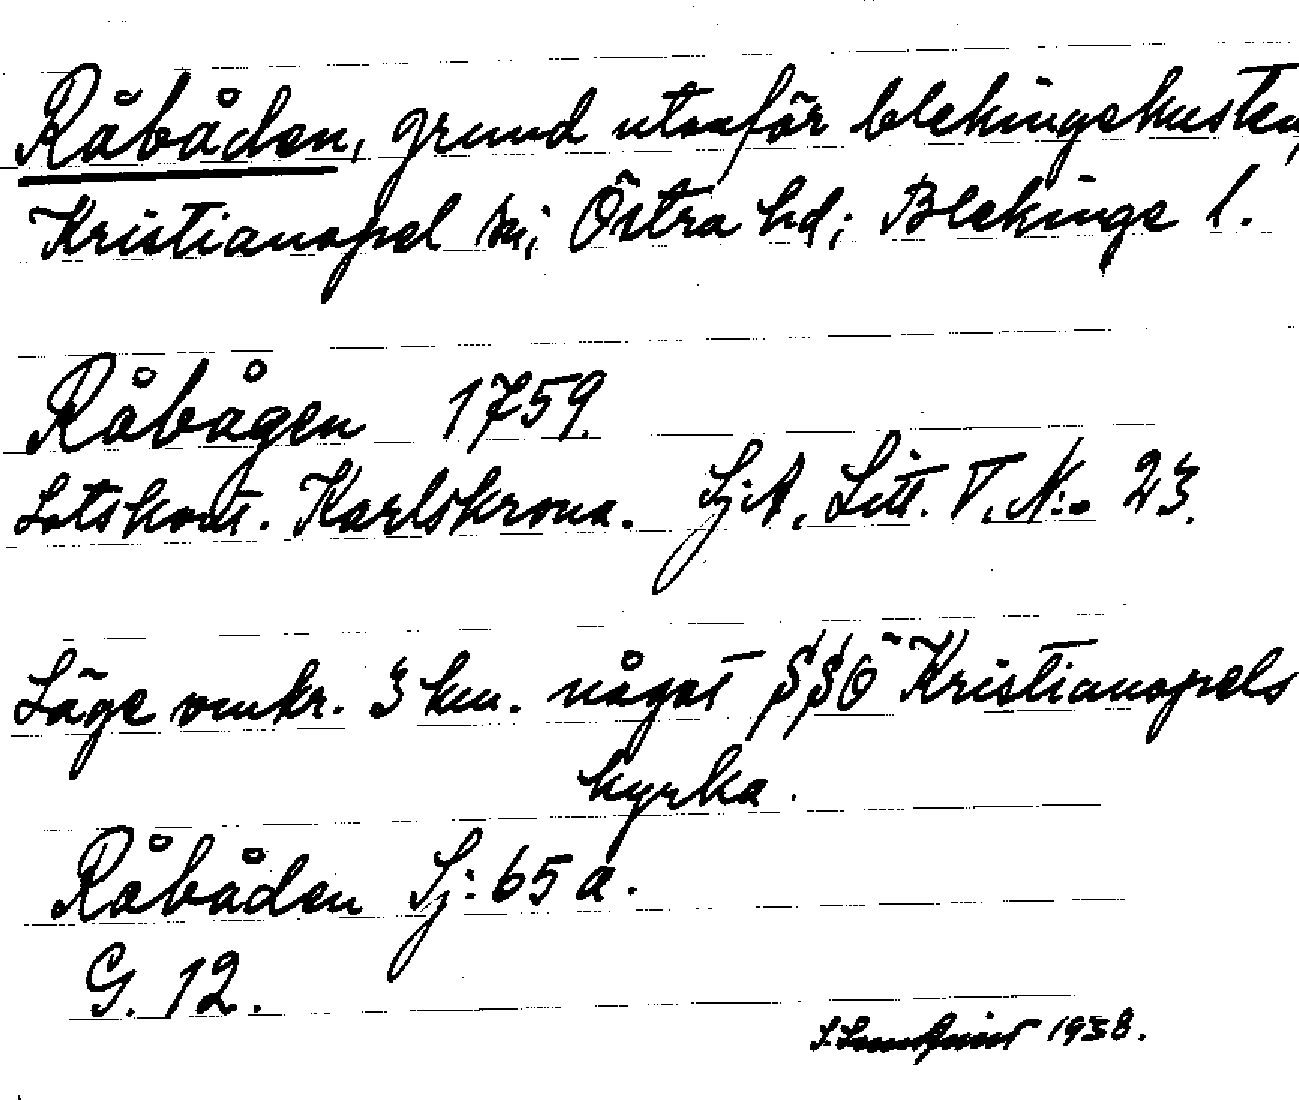 Råbåden, grund utanför blekingekusten,
Kristianopel sn; Östra hd; Blekinge l.
Råbågen 1759.
Lotskont. Karlskrona. Sj:A, Litt. V. N:o 23.
Läge omkr. 3 km. något SSÖ Kristianopels
kyrka.
Råbåden Sj: 65 a.
G. 12.
1938.